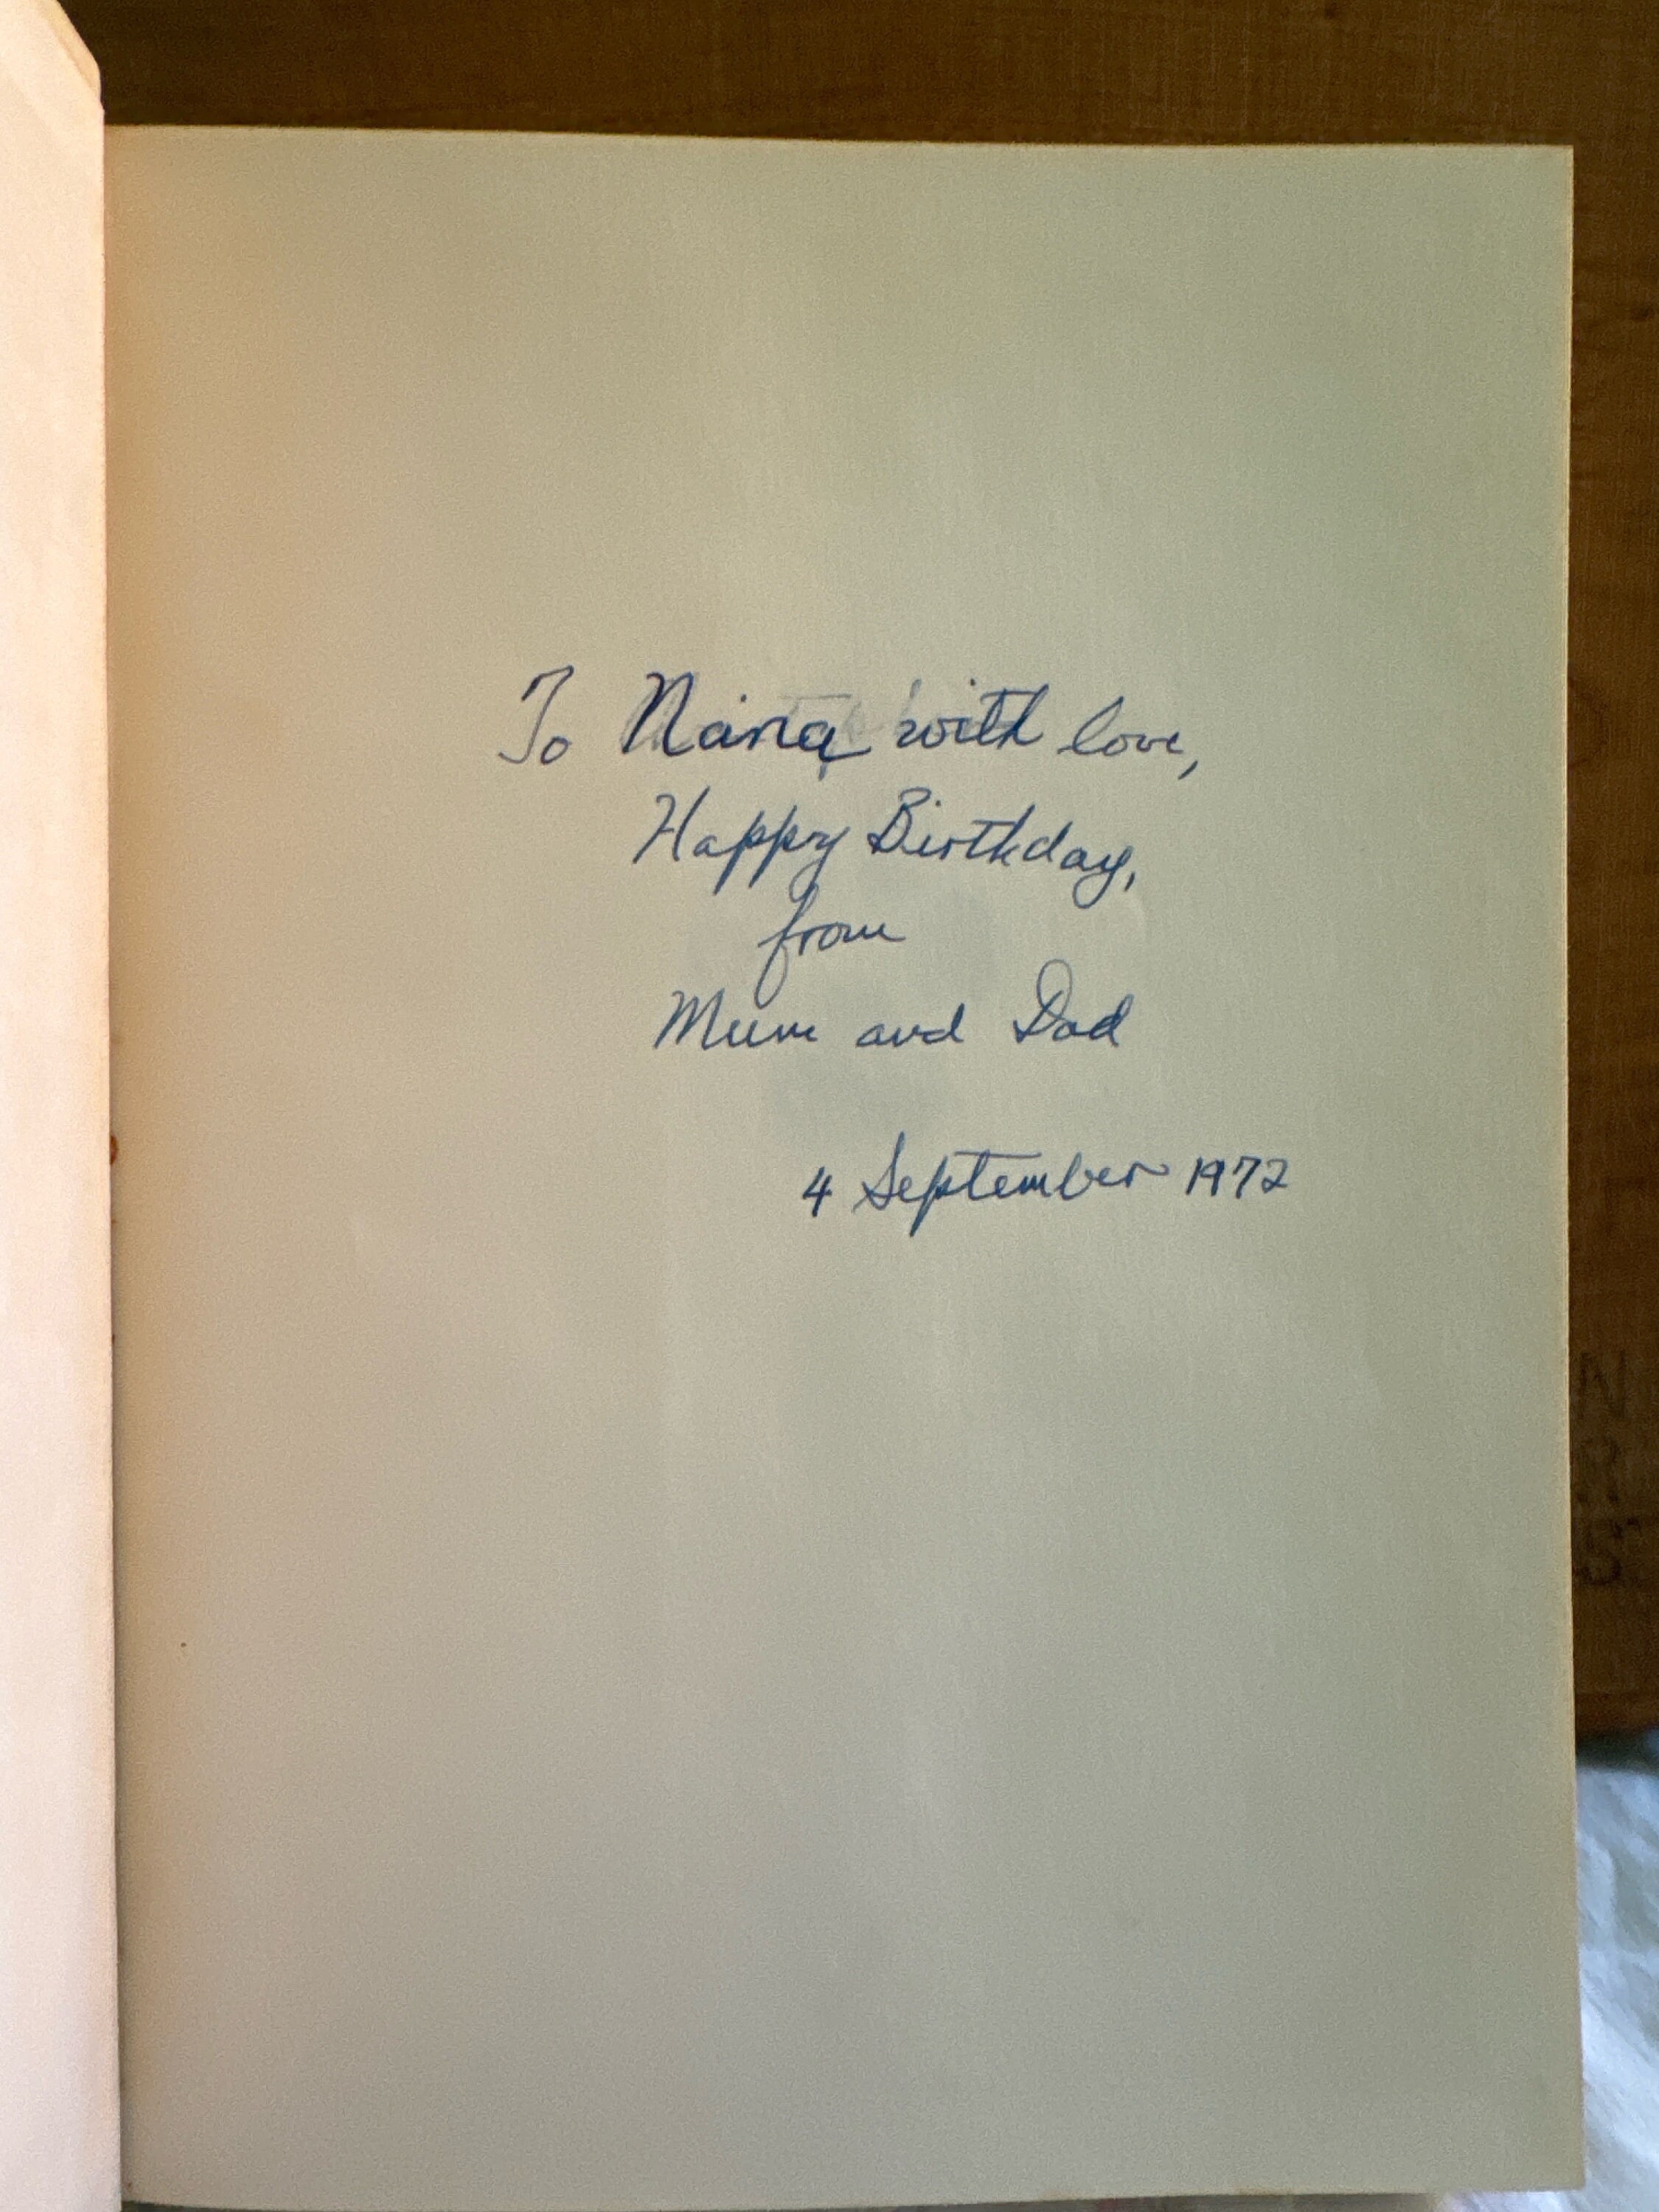 To Naina with love,
Happy Birthday,
from
Mum and Dad
4 September 1972
N
R
S